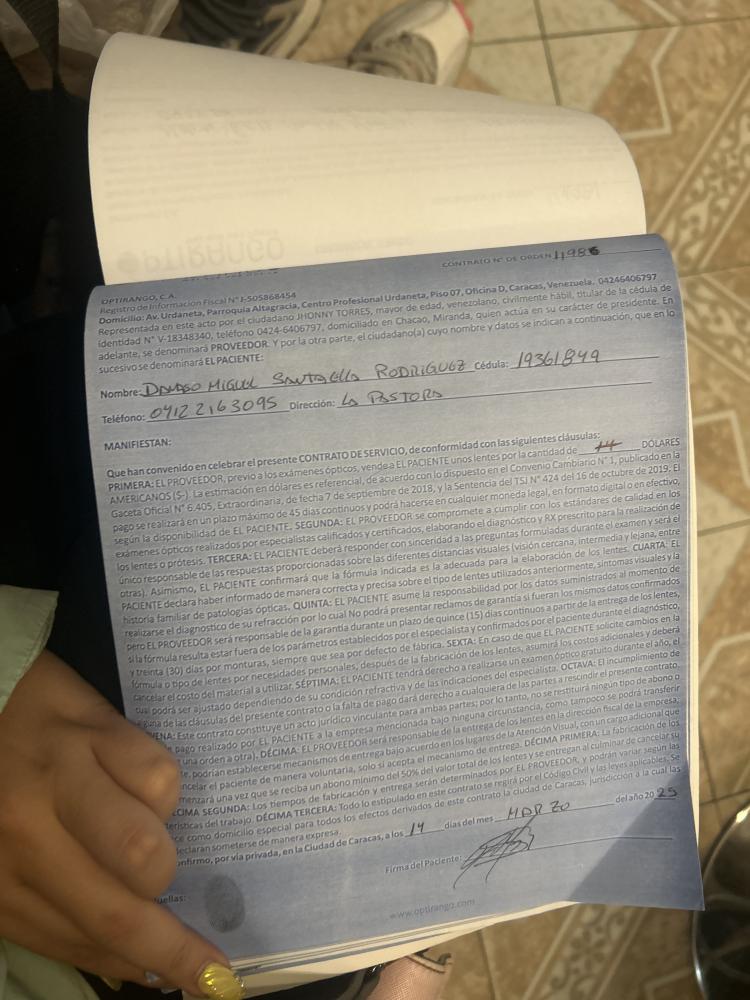 CONTRATO N° DE ORDEN 11986
OPTIRANGO, C.A.
Registro de Información Fiscal N° J-505868454
Domicilio: Av. Urdaneta, Parroquia Altagracia, Centro Profesional Urdaneta, Piso 07, Oficina D, Caracas, Venezuela. 04246406797
Representada en este acto por el ciudadano JHONNY TORRES, mayor de edad, venezolano, civilmente hábil, titular de la cédula de
identidad N° V-18348340, teléfono 0424-6406797, domiciliado en Chacao, Miranda, quien actúa en su carácter de presidente. En
adelante, se denominará PROVEEDOR. Y por la otra parte, el ciudadano(a) cuyo nombre y datos se indican a continuación, que en lo
sucesivo se denominará EL PACIENTE:
Nombre: DAMASO MIGUEL SANTAELLA RODRIGUEZ Cédula: 19361849
Teléfono: 0412 2163095 Dirección: LA PASTORA
MANIFIESTAN:
Que han convenido en celebrar el presente CONTRATO DE SERVICIO, de conformidad con las siguientes cláusulas:
PRIMERA: EL PROVEEDOR, previo a los exámenes ópticos, vende a EL PACIENTE unos lentes por la cantidad de DÓLARES
AMERICANOS ($-). La estimación en dólares es referencial, de acuerdo con lo dispuesto en el Convenio Cambiario N° 1, publicado en la
Gaceta Oficial N° 6.405, Extraordinaria, de fecha 7 de septiembre de 2018, y la Sentencia del TSJ N° 424 del 16 de octubre de 2019. El
pago se realizará en un plazo máximo de 45 días continuos y podrá hacerse en cualquier moneda legal, en formato digital o en efectivo,
según la disponibilidad de EL PACIENTE. SEGUNDA: EL PROVEEDOR se compromete a cumplir con los estándares de calidad en los
exámenes ópticos realizados por especialistas calificados y certificados, elaborando el diagnóstico y RX prescrito para la realización de
los lentes o prótesis. TERCERA: EL PACIENTE deberá responder con sinceridad a las preguntas formuladas durante el examen y será el
único responsable de las respuestas proporcionadas sobre las diferentes distancias visuales (visión cercana, intermedia y lejana, entre
otras). Asimismo, EL PACIENTE confirmará que la fórmula indicada es la adecuada para la elaboración de los lentes. CUARTA: EL
PACIENTE declara haber informado de manera correcta y precisa sobre el tipo de lentes utilizados anteriormente, síntomas visuales y la
historia familiar de patologías ópticas. QUINTA: EL PACIENTE asume la responsabilidad por los datos suministrados al momento de
realizarse el diagnostico de su refracción por lo cual No podrá presentar reclamos de garantía si fueran los mismos datos confirmados
pero EL PROVEEDOR será responsable de la garantía durante un plazo de quince (15) días continuos a partir de la entrega de los lentes,
y treinta (30) días por monturas, siempre que sea por defecto de fábrica. SEXTA: En caso de que EL PACIENTE solicite cambios en la
si la fórmula resulta estar fuera de los parámetros establecidos por el especialista y confirmados por el paciente durante el diagnóstico,
fórmula o tipo de lentes por necesidades personales, después de la fabricación de los lentes, asumirá los costos adicionales y deberá
cancelar el costo del material a utilizar. SÉPTIMA: EL PACIENTE tendrá derecho a realizarse un examen óptico gratuito durante el año, el
cual podrá ser ajustado dependiendo de su condición refractiva y de las indicaciones del especialista. OCTAVA: El incumplimiento de
alguna de las cláusulas del presente contrato o la falta de pago dará derecho a cualquiera de las partes a rescindir el presente contrato.
VENA: Este contrato constituye un acto jurídico vinculante para ambas partes; por lo tanto, no se restituirá ningún tipo de abono o
pago realizado por EL PACIENTE a la empresa mencionada bajo ninguna circunstancia, como tampoco se podrá transferir
una orden a otra). DÉCIMA: EL PROVEEDOR será responsable de la entrega de los lentes en la dirección fiscal de la empresa,
te, podrían establecerse mecanismos de entrega bajo acuerdo en los lugares de la Atención Visual, con un cargo adicional que
ncelar el paciente de manera voluntaria, solo si acepta el mecanismo de entrega. DÉCIMA PRIMERA: La fabricación de los
menzará una vez que se reciba un abono mínimo del 50% del valor total de los lentes y se entregan al culminar de cancelar su
CIMA SEGUNDA: Los tiempos de fabricación y entrega serán determinados por EL PROVEEDOR, y podrán variar según las
terísticas del trabajo. DÉCIMA TERCERA: Todo lo estipulado en este contrato se regirá por el Código Civil y las leyes aplicables. Se
ce como domicilio especial para todos los efectos derivados de este contrato la ciudad de Caracas, jurisdicción a la cual las
declaran someterse de manera expresa.
onfirmo, por vía privada, en la Ciudad de Caracas, a los 14 días del mes MARZO del año 2025
Firma del Paciente:
uellas:
www.optirango.com